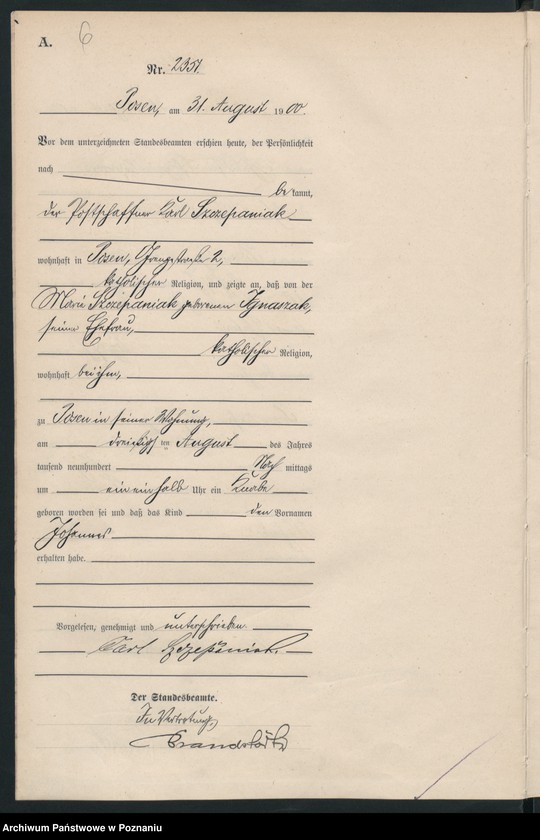 A. 6
Nr. 2351.
Posen, am 31. August 1900.
Vor dem unterzeichneten Standesbeamten erschien heute, der Persönlichkeit
nach
bekannt,
der Postschaffner Karl Szczepaniak
wohnhaft in Posen, 2,
katholischer Religion, und zeigte an, daß von der
Marie Szczepaniak geborenen Ignaszak,
seiner Ehefrau,
katholischer Religion,
wohnhaft bei ihm,
zu Posen in seiner Wohnung,
am dreißigsten August des Jahres
tausend neunhundert Nachmittags
um ein einhalb Uhr ein Knabe
geboren worden sei und daß das Kind den Vornamen
Johannes
erhalten habe.
Vorgelesen, genehmigt und unterschrieben.
Carl Szczepaniak.
Der Standesbeamte.
In Vertretung,
Archiwum Państwowe w Poznaniu